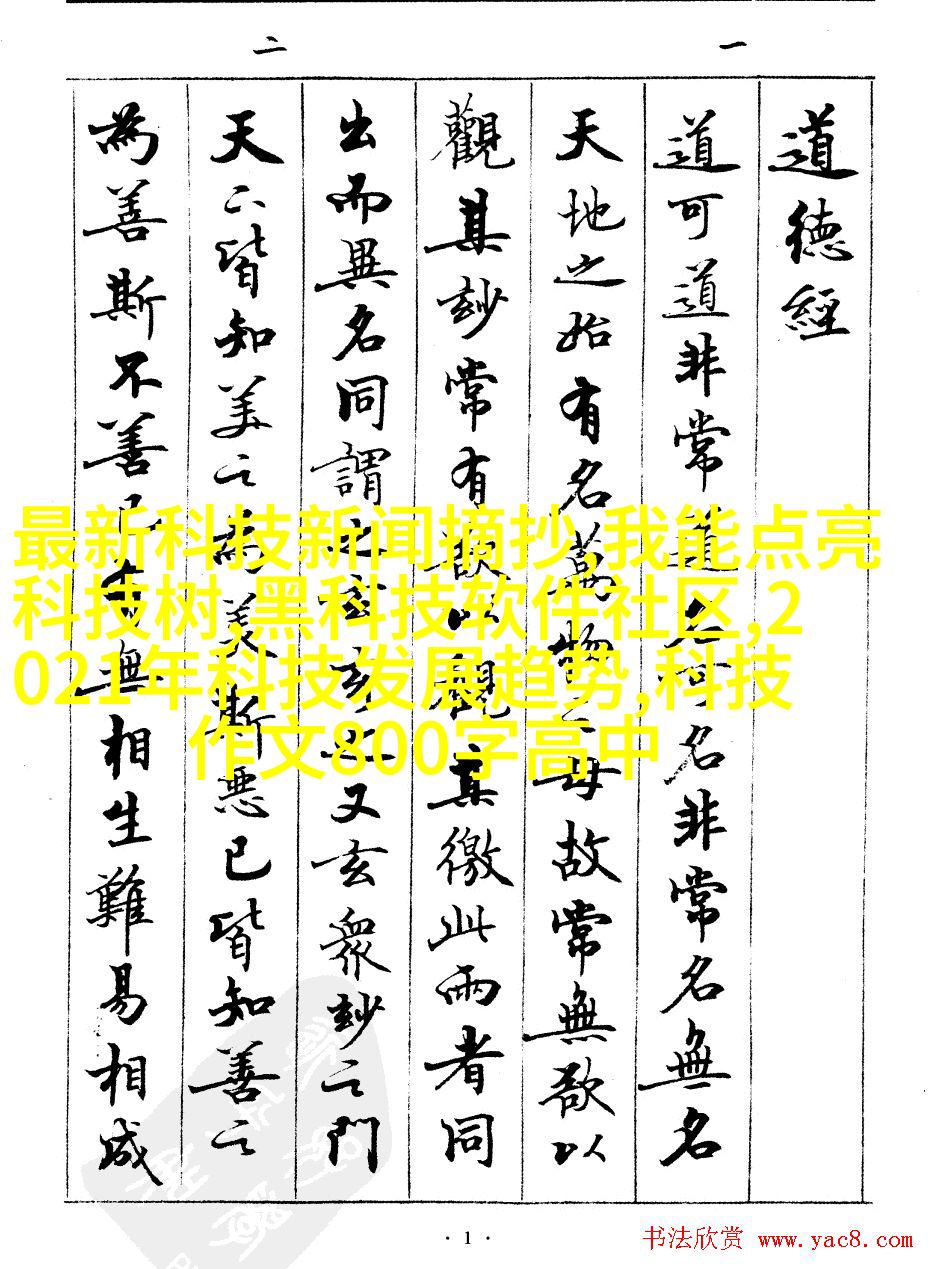 一
二
道德經
道可道非常道名可名非常名無名
天地之始有名萬物之母故常無欲以
觀其玅常有欲以觀其徼此兩者同
出而異名同謂之玄玄之又玄衆玅之門
天下皆知美之為美斯惡已皆知善之
為善斯不善已有無相生難易相成
最新科技新闻摘抄,我能点亮
科技树,黑科技软件社区,2
021年科技发展趋势,科技
作文800字高中
· 1 ·
书法欣赏 www.yac8.com